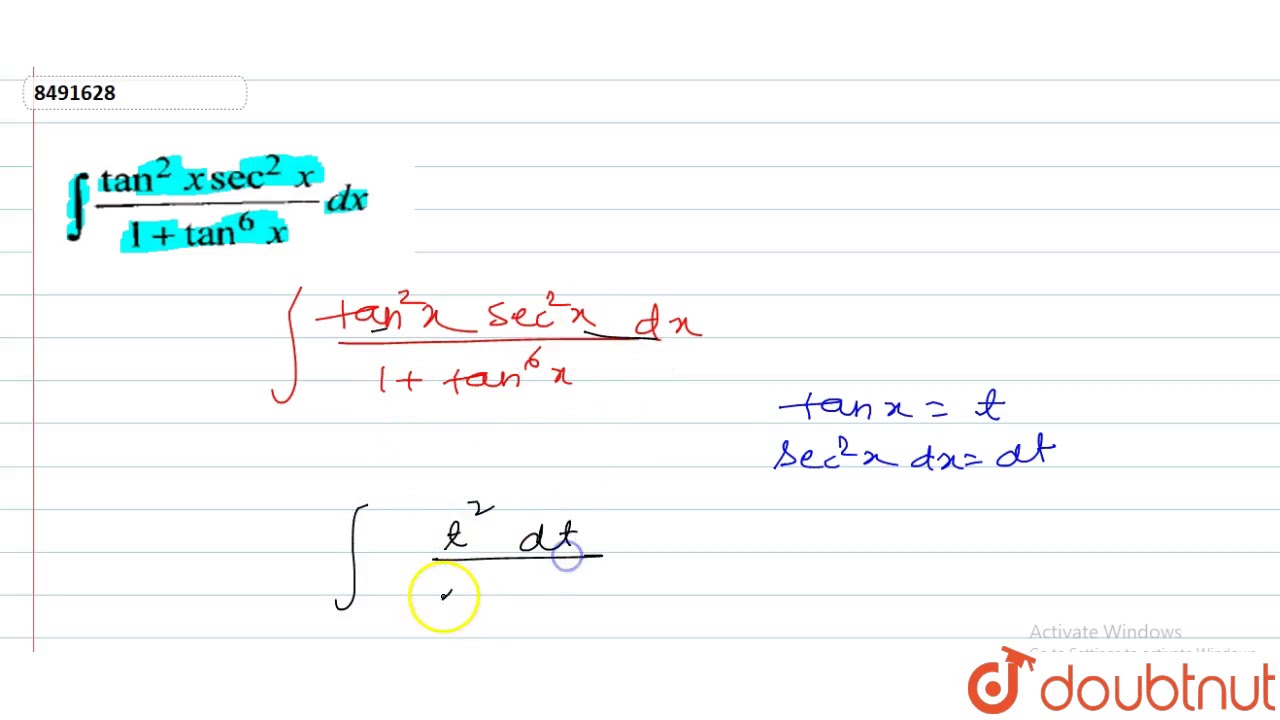 8491628
∫ tan² x sec² x / 1 + tan⁶ x dx
∫ tan²x sec²x dx / 1 + tan⁶x
tan x = t
sec²x dx = dt
∫ t² dt
Activate Windows
doubtnut